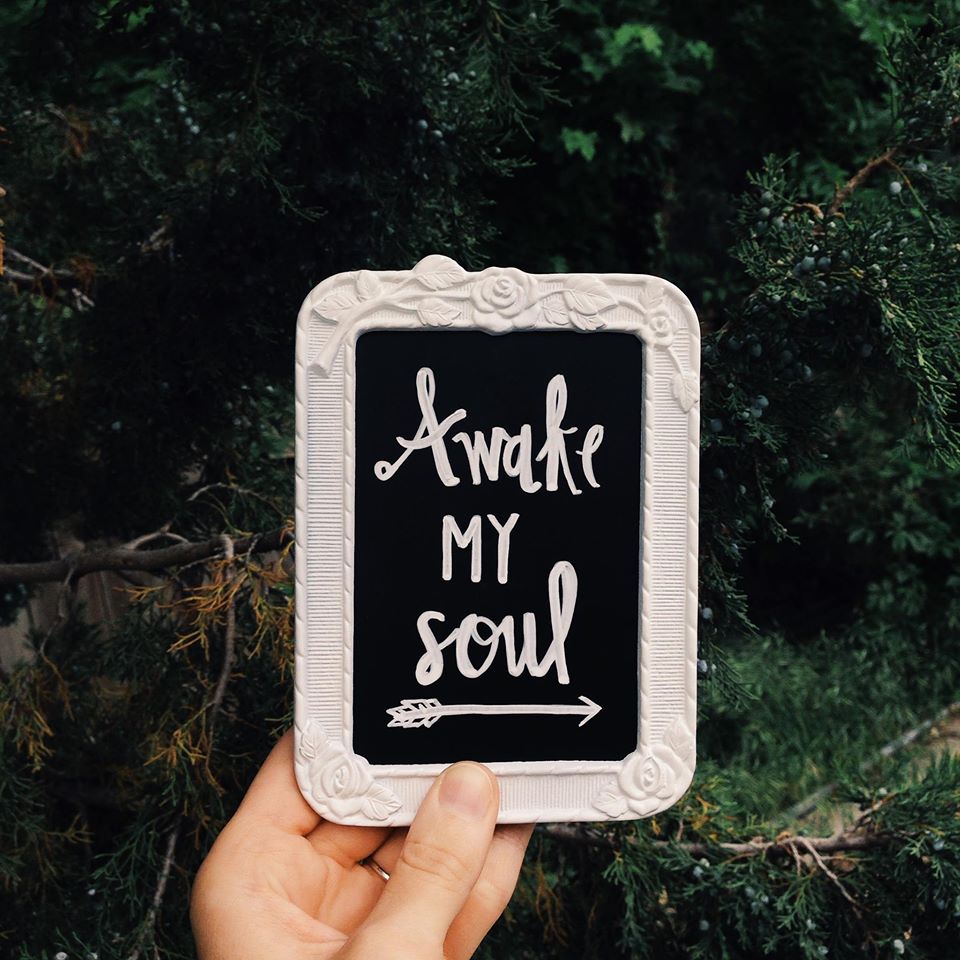 Awake
MY
soul